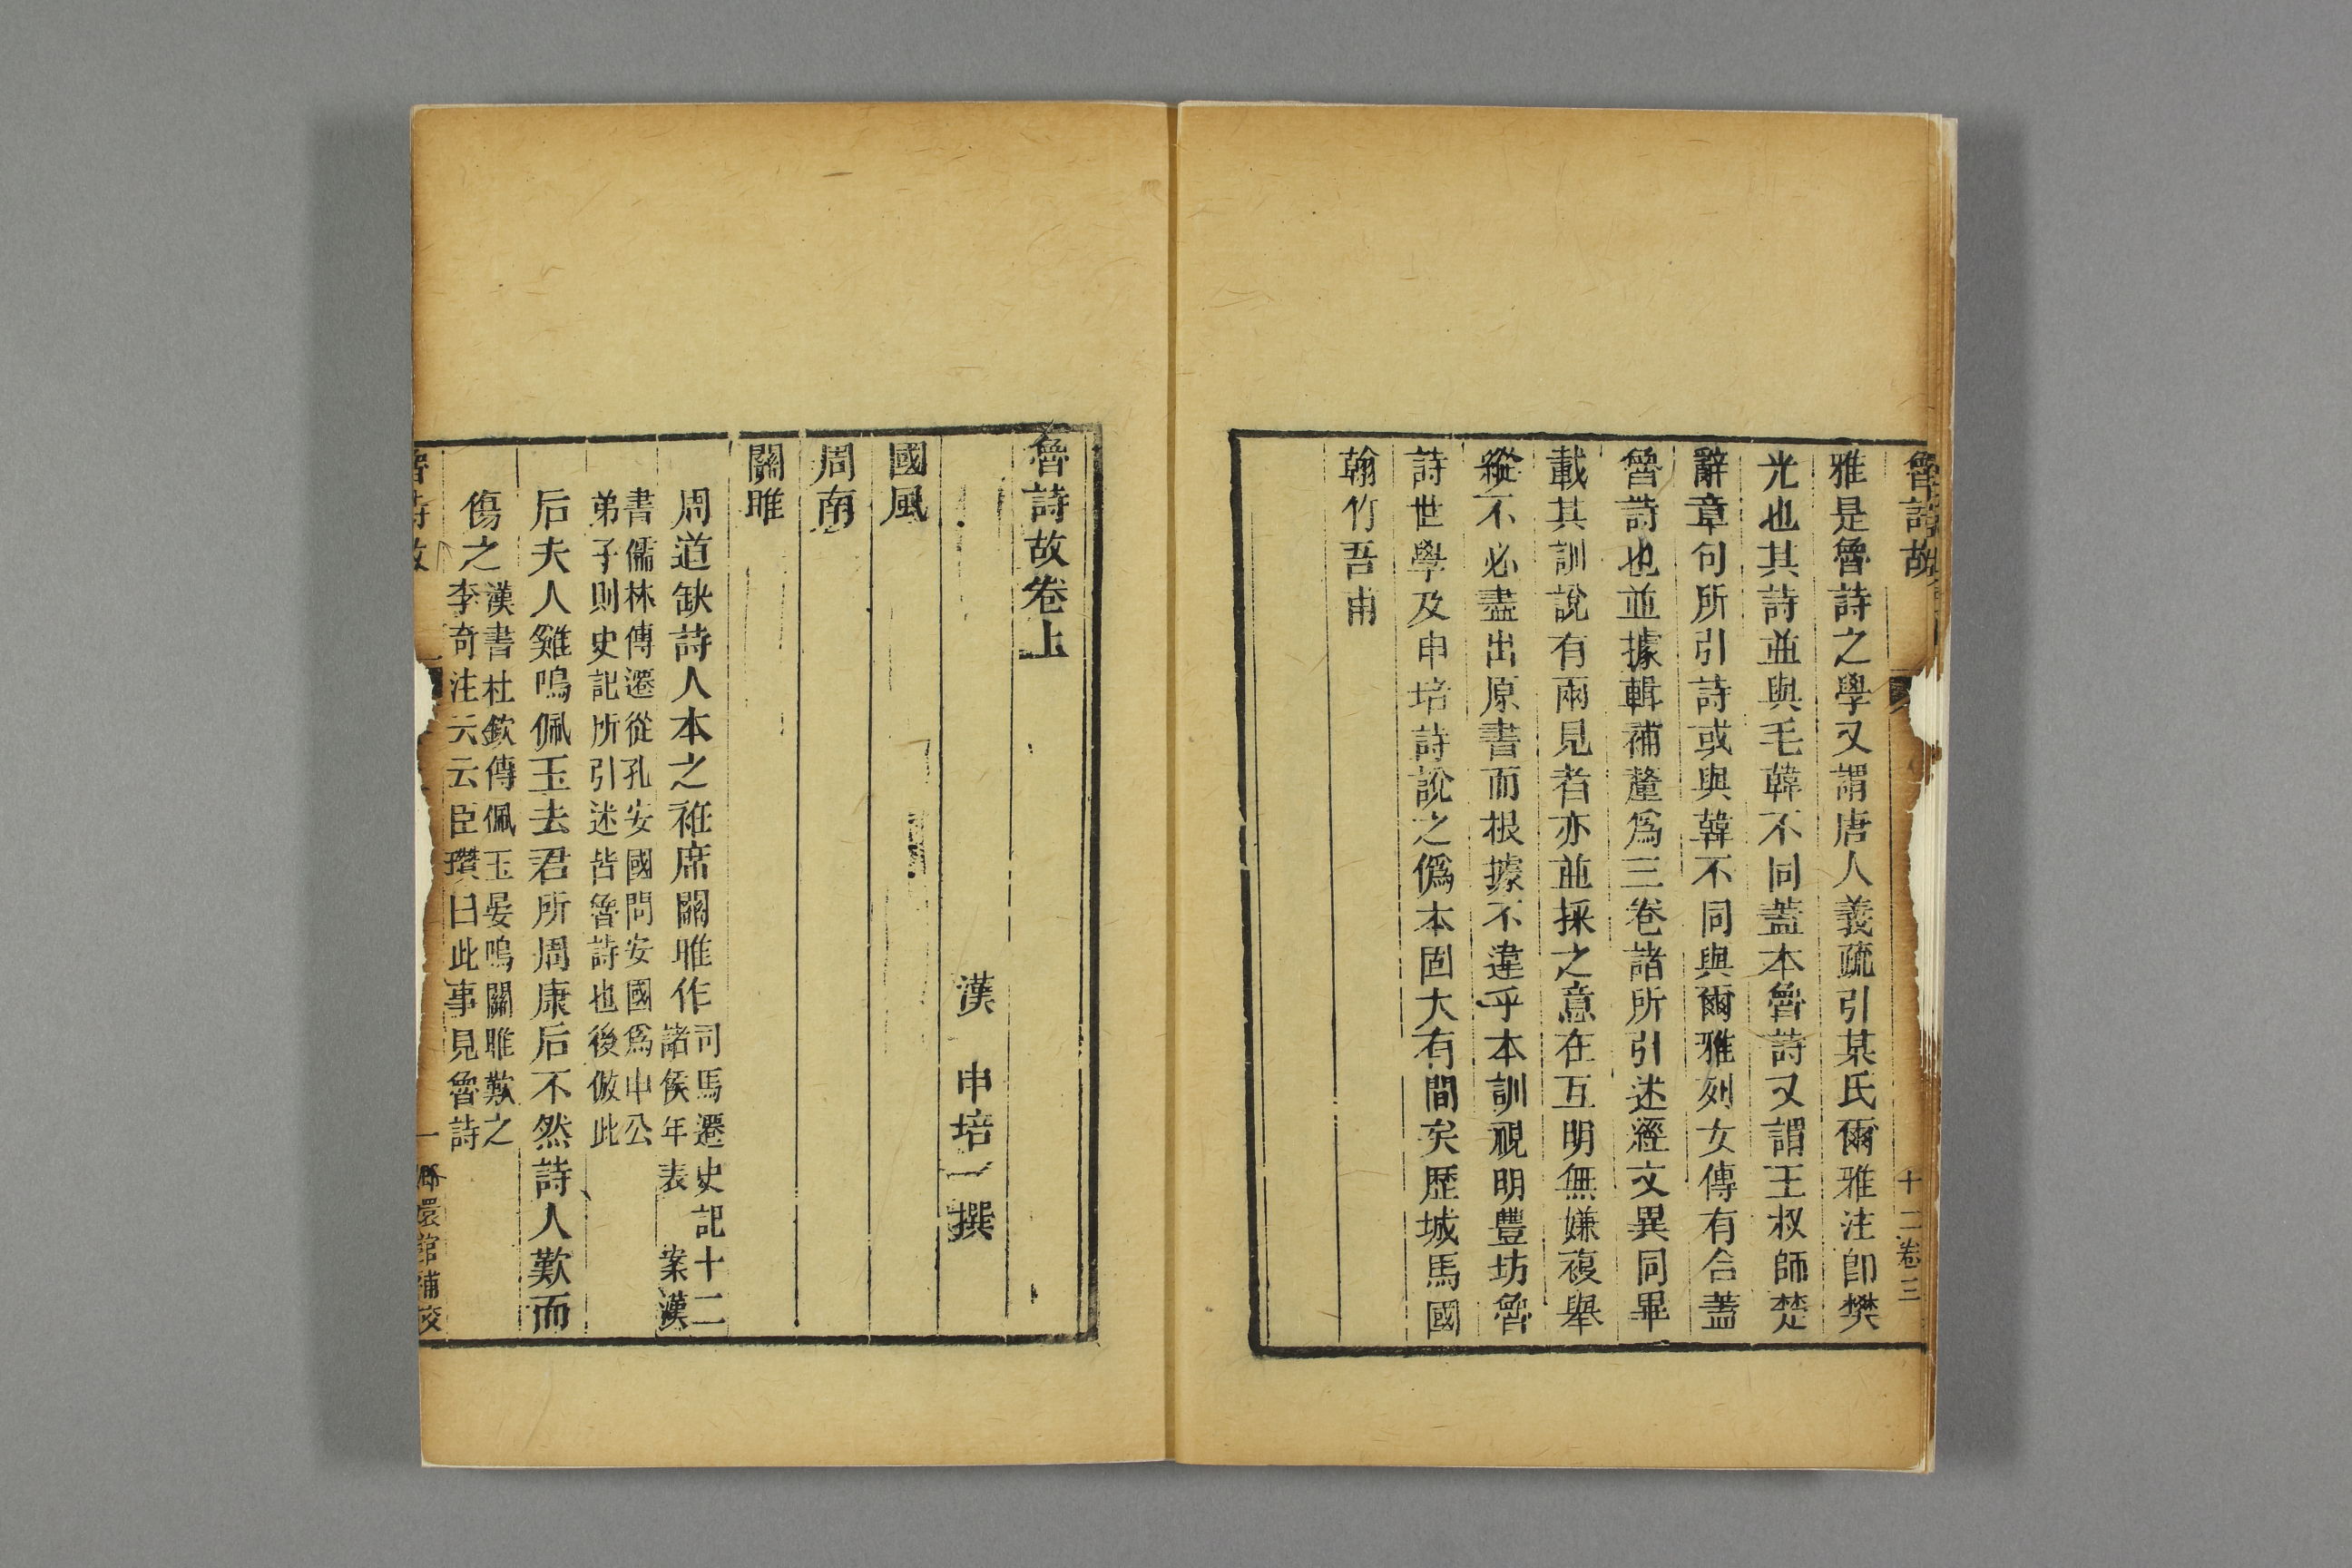 魯詩故
十二卷三
雅是魯詩之學又謂唐人義疏引某氏爾雅注卽樊
光也其詩並與毛韓不同蓋本魯詩又謂王叔師楚
辭章句所引詩或與韓不同與爾雅列女傳有合蓋
魯詩也並據輯補釐爲三卷諸所引述經文異同畢
載其訓說有兩見者亦並採之意在互明無嫌複舉
縱不必盡出原書而根據不違乎本訓視明豐坊魯
詩世學及申培詩說之僞本固大有間矣歷城馬國
翰竹吾甫
魯詩故卷上
漢　申培　撰
國風
周南
關雎
周道缺詩人本之衽席關雎作司馬遷史記十二
諸侯年表　案漢
書儒林傳遷從孔安國問安國爲申公
弟子則史記所引述皆魯詩也後倣此
后夫人雞鳴佩玉去君所周康后不然詩人歎而
傷之漢書杜欽傳佩玉晏鳴關雎歎之
李奇注云云臣瓚曰此事見魯詩
魯詩故
一
嫏嬛館補校